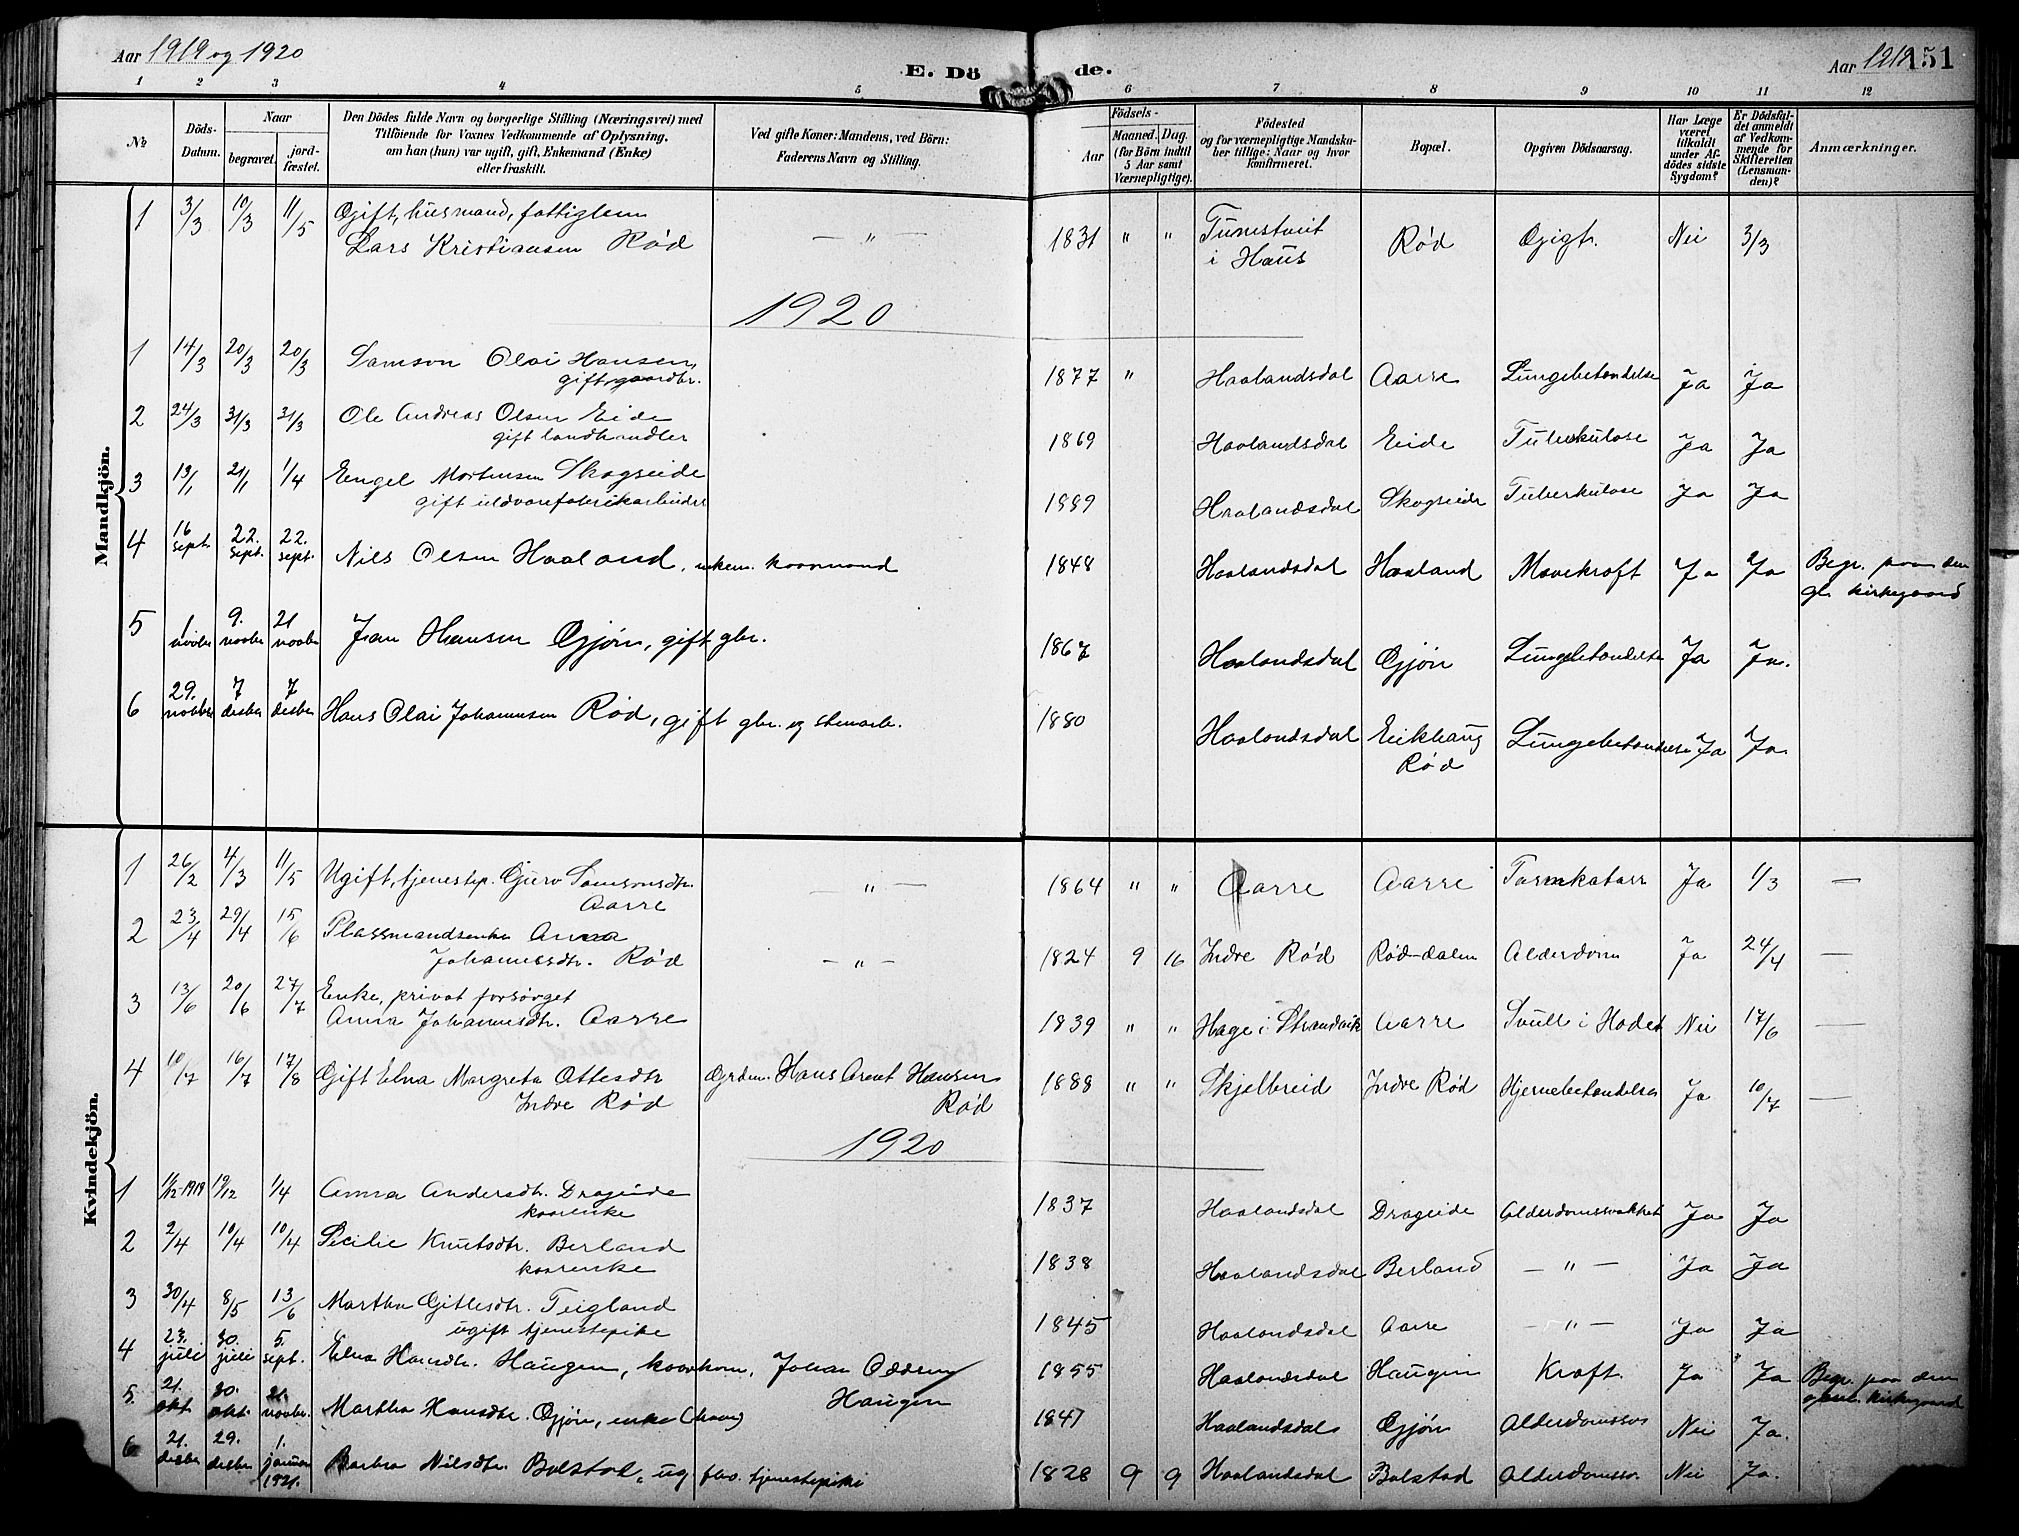 Aar 1919 og 1920
E. Dö de.
Aar 1919 151
1 2 3 4 5 6 7 8 9 10 11 12
No
Döds-Datum.
Naar
begravet.
jord-fæstet.
Den Dödes fulde Navn og borgerlige Stilling (Næringsvei) med
Tilföiende for Voxnes Vedkommende af Oplysning,
om han (hun) var ugift, gift, Enkemand (Enke)
eller fraskilt.
Ved gifte Koner: Mandens, ved Börn:
Faderens Navn og Stilling.
Födsels-
Aar
Maaned. Dag.
(for Börn indtil
5 Aar samt
Værnepligtige).
Födested
og for værnepligtige Mandska-
ber tillige: Naar og hvor
konfirmeret.
Bopæl.
Opgiven Dödsaarsag.
Har Læge
været
tilkaldt
under Af-
dödes sidste
Sygdom?
Er Dödsfal-
det anmeldt
af Vedkom-
mende for
Skifteretten
(Lensman-
den)?
Anmærkninger.
Mandkjön.
1 3/3 10/3 11/5 Gift, husmand, fattiglem
Lars Kristiansen Rød — " — 1831 " " Tunestveit
i Haus Rød Gigt. Nei 3/3
1920
1 14/3 20/3 20/3 Samson Olai Hansen,
gift gaardbr. 1877 " Haalandsdal Aarre Lungebetændelse Ja Ja
2 24/3 31/3 31/3 Ole Andreas Olsen Eide
gift landhandler 1869 Haalandsdal Eide Tuberkulose Ja Ja
3 21/1 1/4 Engel Mortensen Skogseide
gift uldvarefabrikarbeider 1889 Haalandsdal Skogseide Tuberkulose Ja Ja
4 16 sept. 22. sept. 22. sept. Nils Olsen Haaland, enkem. kaarmand 1848 Haalandsdal Haaland Mavekræft Ja Ja Begr. paa den
gl. kirkegaard
5 1 novbr 9. novbr 21 novbr Hansen Gjøn, gift gbr. 1867 Haalandsdal Gjøn Lungebetændelse Ja Ja.
6 29. novbr 7 desbr 7 desbr Hans Olai Johannesen Rød, gift gbr. og stenarb. 1880 Haalandsdal Eikhaug
Rød Lungebetændelse Ja Ja.
Kvindekjön.
1 26/2 4/3 11/5 Ugift, tjenestep. Guro Samsonsdtr.
Aarre — " — 1864 " " Aarre Aarre Tarmkatarr Ja 1/3 —
2 23/4 29/4 15/6 Plassmandsenke Anna
Johannesdtr. Rød — " — 1824 9 16 Indre Rød Rød-dalen Alderdom Ja 24/4 —
3 13/6 20/6 27/7 Enke, privat forsørget
Anna Johannesdtr. Aarre 1839 " " Hage i Strandvik Aarre Svull i Hodet Nei 17/6 —
4 10/7 16/7 17/8 Gift Elna Margreta Ottesdtr
Indre Rød Grdm. Hans Arent Hansen
Rød 1888 " " Skjelbreid Indre Rød Hjernebetændelse Ja 10/7 —
1920
1 11/12-1919 19/12 1/4 Anna Andersdtr. Drageide
kaarenke 1837 Haalandsdal Drageide Alderdomssvakhet Ja Ja
2 2/4 10/4 10/4 Secilie Knutsdtr. Berland
kaarenke 1838 Haalandsdal Berland — " — Ja Ja
3 30/4 8/5 13/6 Martha Gitlesdtr. Teigland
ugift tjenestepike 1845 Haalandsdal Aarre — " — Ja Ja
4 23. juli 30. juli 5. sept. Elna Hansdtr. Haugen, kaarkone, Johan Oddsen
Haugen 1855 Haalandsdal Haugen Kræft. Ja Ja Begr. paa den
kirkegaard
5. 21. okt. 30. okt. 21. novbr. Martha Hansdtr. Gjøn, enke (kaar) 1847 Haalandsdal Gjøn Alderdomssv Nei Ja.
6 21. desbr 29. desbr 1. januar
1921. Barbra Nilsdtr. Bolstad, ug. fhv. tjenestepike 1828 9 9 Haalandsdal Bolstad Alderdomssv. Nei Ja.